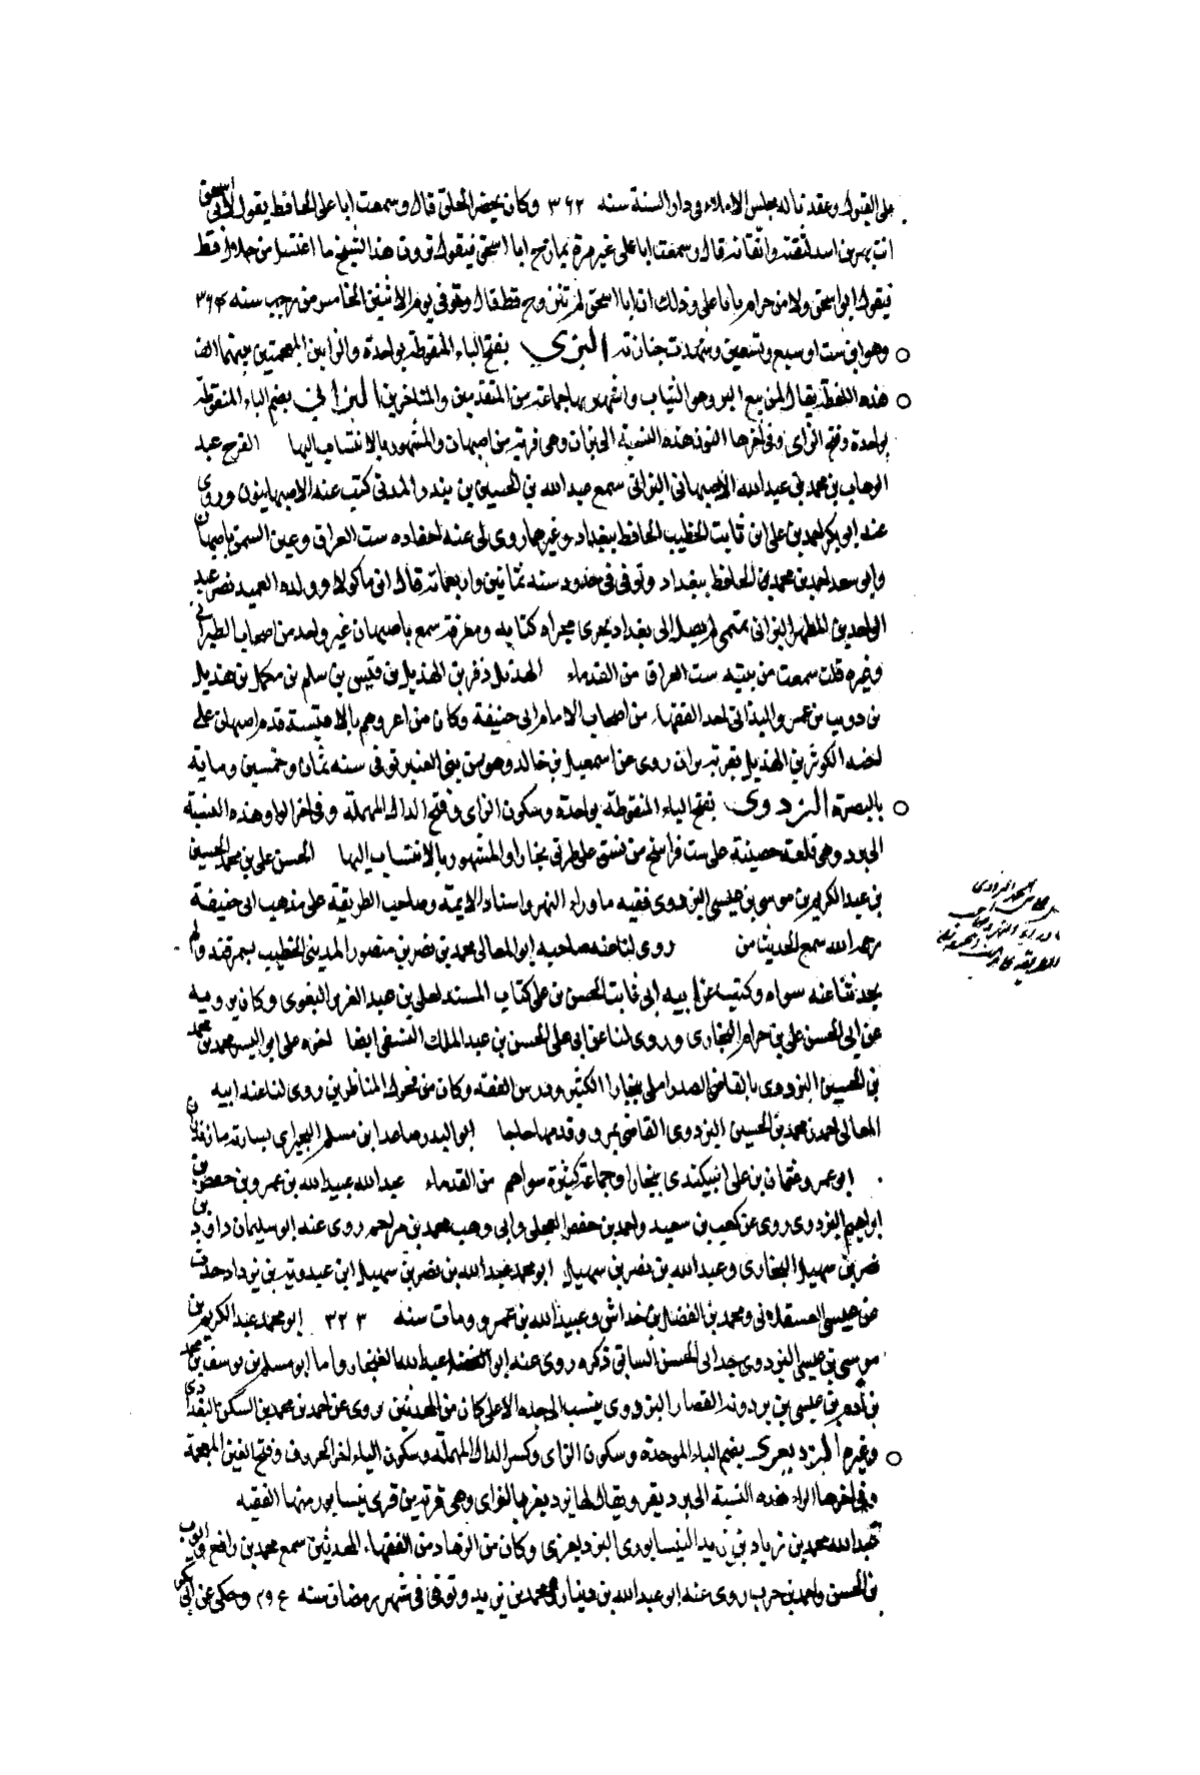 على القبول وعقد ناله مجلس الاملاء فى دار السنة سنه ٣٦٢ وكان يحضر الخلق قال وسمعت ابا على الحافظ يقول لابى اسحق
انت بهز بن اسد لثقته واتقانه قال وسمعت ابا على غير مرة يمازح ابا اسحق فيقول ترون هذا الشيخ ما اغتسل من حلال قط
فيقول ابو اسحق ولا من حرام يا با على وذلك ان ابا اسحق لم يتزوج قط قال وتوفى يوم الاثنين الخامس من رجب سنه ٣٦٤
وهو ابن ست او سبع وتسعين وشهدت جنازته البزى بفتح الباء المنقوطة بواحدة والزايين المعجمتين بينهما الف
هذه اللفظة يقال لمن يبيع البز وهو الثياب واشهر بها جماعة من المتقدمين والمتاخرين البزانى بضم الباء المنقوطة
بواحدة وفتح الزاى وفى اخرها النون هذه النسبة الى بزان وهى قرية من اصبهان والمشهور بالانتساب اليها الفرج عبد
الوهاب بن محمد بن عبد الله الاصبهانى البزانى سمع عبد الله بن الحسين بن بندار المدنى كتب عنه الاصبهانيون وروى
عنه ابو بكر احمد بن على ابن ثابت الخطيب الحافظ ببغداد وغيرهما روى لى عنه احفاده ست العراق وعين السمتى باصبهان
وابو سعد احمد بن محمد بن الحافظ ببغداد وتوفى فى حدود سنه ثمانين واربعمائه قال ابن ماكولا وولده العميد نصر عبد
الواحد بن المطهر البزانى يمتمى لم يصل الى بغداد يجرى مجراه كتابه ومعرفة سمع باصبهان غير واحد من اصحاب الطبرانى
وغيره قلت سمعت من بيته ست العراق من القدماء الهذيل زفر بن الهذيل بن قيس بن سلم بن مكمل بن هذيل
بن دويب بن عمرو البذانى احد الفقهاء من اصحاب الامام ابى حنيفة وكان من اعروهم بالاقيسة قدم اصبهان على
اخيه الكوثر بن الهذيل بقرية بزان روى عن اسمعيل بن خالد وهو من بنى العنبر توفى سنه ثمان وخمسين ومايه
بالبصرة البزدوى بفتح الباء المنقوطة بواحدة وسكون الزاى وفتح الدال المهملة وفى اخرها واو هذه النسبة
الى بزد وهى قلعة حصينة على ست فراسخ من نسف على طرق بخارا والمشهور بالانتساب اليها الحسن على بن محمد الحسين
بن عبد الكريم بن موسى بن عيسى البزدوى فقيه ماوراء النهر واستاد الايمة وصاحب الطريقة على مذهب ابى حنيفة
رحمه الله سمع الحديث من روى لنا عنه صاحبه ابو المعالى محمد بن نصر بن منصور المدينى الخطيب بسمرقند ولم
يحدثنا عنه سواه وكتب عن ابيه ابى ثابت الحسن بن على كتاب المسند لعلى بن عبد العزيز البغوى وكان يرويه
عن ابى الحسن على بن حرام البخارى وروى لنا عن ابى على الحسن بن عبد الملك النسفى ايضا اخوه على ابو اليسر محمد بن محمد
بن الحسين البزدوى بالقاضى الصدر املى بخارا الكثير ودرس الفقه وكان من فحول المناظرين روى لنا عنه ابيه
المعالى احمد بن محمد بن الحسين البزدوى القاضى بمرو وقدمها حاجا ابو البدر صاعد ابن مسلم البجيرى بسارته مازندران
ابو عمرو عثمان بن على البيكندى ببخارا وجماعة كثيرة سواهم من القدماء عبد الله عبيد الله بن عمرو بن حفص بن
ابراهيم البزدوى روى عن كعب بن سعيد واحمد بن حفص العجلى وابى وهب محمد بن مزاحم روى عنه ابو سليمان داود بن
نصر بن سهيل البخارى وعبد الله بن نصر بن سهيل ابو محمد عبد الله بن نصر بن سهيل ابن عبدويه بن يزداد حدث
عن عيسى العسقلانى ومحمد بن الفضل بن خداش وعبيد الله بن عمرو ومات سنه ٣٢٣ ابو محمد عبد الكريم بن
موسى بن عيسى البزدوى جد ابى الحسن السابق ذكره روى عنه ابو عبد الله الغنجار واما ابو مسلم بن يوسف بن محمد
بن آدم بن عيسى بن بزدونه القصار البزدوى ينسب الى جده الاعلى كان من المحدثين يروى عن احمد بن محمد بن السكن البغدادى
وغيره البزديغرى بضم الباء الموحدة وسكون الزاى وكسر الدال المهملة وسكون الياء اخر الحروف وفتح الغين المعجمة
وفى اخرها الراء هذه النسبة الى بزديغر ويقال لها يزديغر بالزاى وهى قرية من قرى نيسابور منها الفقيه
عبد الله محمد بن زياد بن يزيد النيسابورى البزديغرى وكان من الزهاد من الفقهاء المحدثين سمع محمد بن رافع وايوب
بن الحسن واحمد بن حرب روى عنه ابو عبد الله بن دينار ومحمد بن يزيد وتوفى فى شهر رمضان سنه وحكى عن ابى بكر